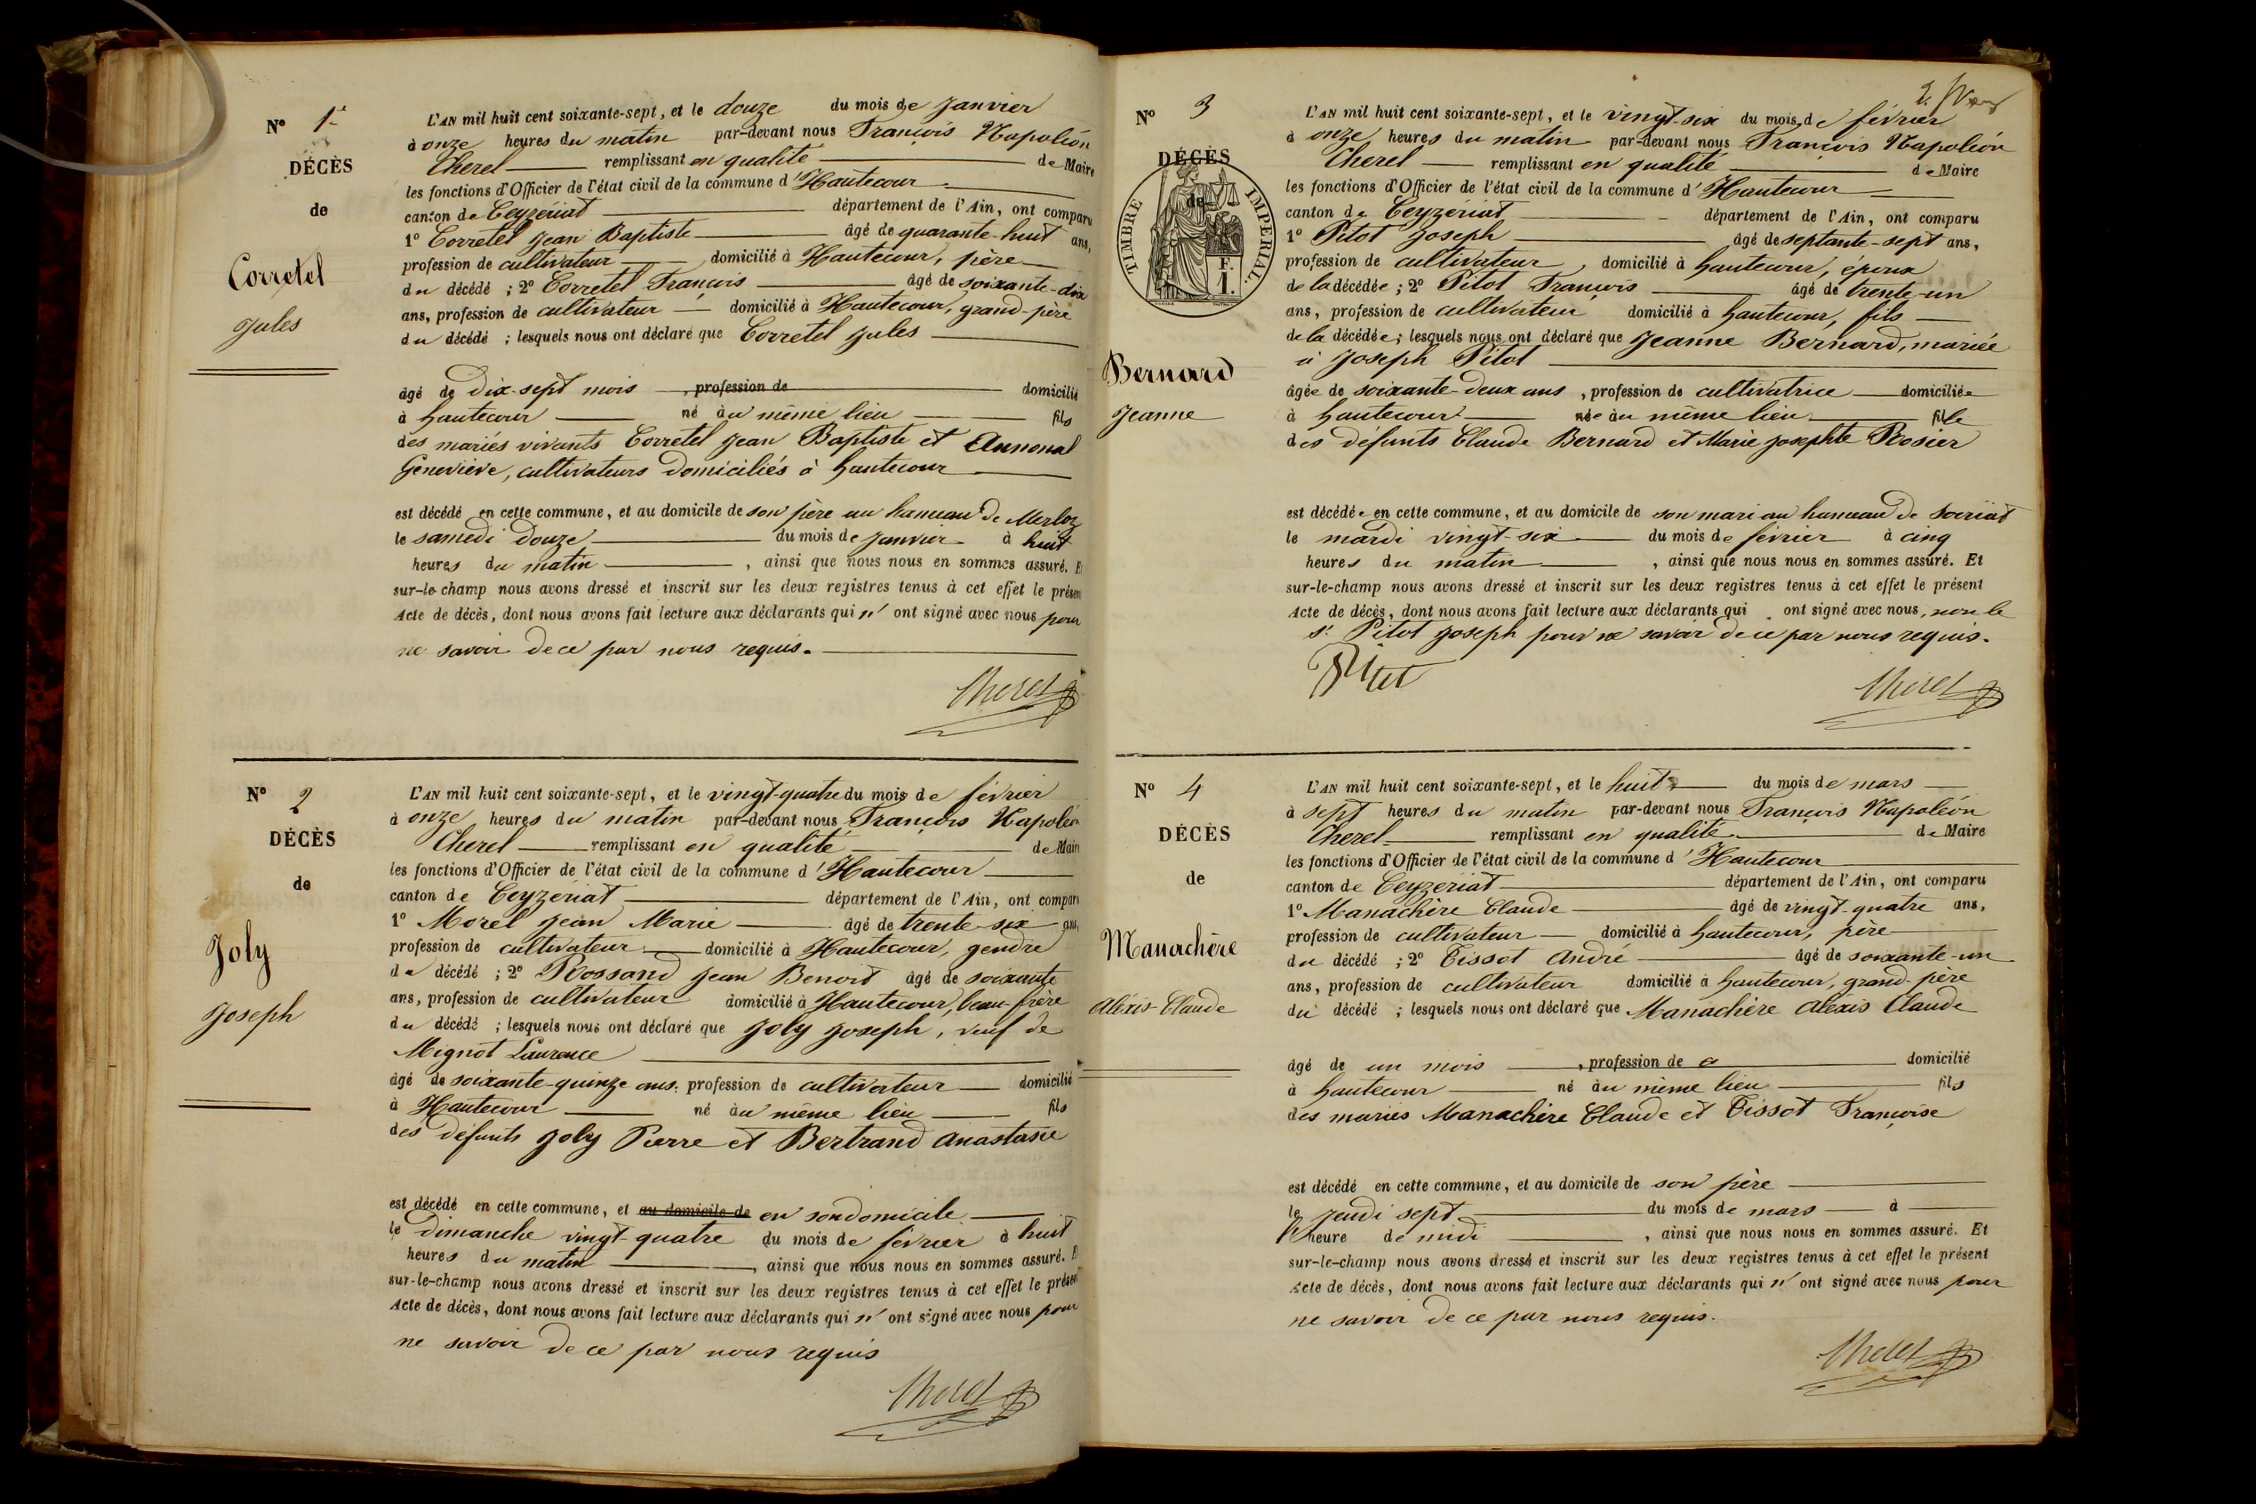 Nº 1er
DÉCÈS
de
Corretel
Jules
L'AN mil huit cent soixante-sept, et le douze du mois de Janvier
à onze heures du matin par-devant nous François Napoléon
Cherel remplissant en qualité de Maire
les fonctions d'Officier de l'état civil de la commune d'Hautecour
canton de Ceyzériat département de l'Ain, ont comparu
1º Corretel Jean Baptiste âgé de quarante-huit ans,
profession de cultivateur domicilié à Hautecour, père
du décédé ; 2º Corretel François âgé de soixante-dix
ans, profession de cultivateur domicilié à Hautecour, grand-père
du décédé ; lesquels nous ont déclaré que Corretel Jules
âgé de Dix-sept mois , profession de domicilié
à hautecour né au même lieu fils
des mariés vivants Corretel Jean Baptiste et
Geneviève, cultivateurs domiciliés à hautecour
est décédé en cette commune, et au domicile de son père au hameau de Merloz
le samedi douze du mois de Janvier à huit
heures du matin , ainsi que nous nous en sommes assuré. E
sur-le-champ nous avons dressé et inscrit sur les deux registres tenus à cet effet le présen
Acte de décès, dont nous avons fait lecture aux déclarants qui n'ont signé avec nous pour
ne savoir de ce par nous requis.
Cherel
Nº 2
DÉCÈS
de
Joly
Joseph
L'AN mil huit cent soixante-sept, et le vingt-quatre du mois de février
à onze heures du matin par-devant nous François Napoléon
Cherel remplissant en qualité de Mair
les fonctions d'Officier de l'état civil de la commune d'Hautecour
canton de Ceyzériat département de l'Ain, ont compar
1º Morel Jean Marie âgé de trente-six ans,
profession de cultivateur domicilié à Hautecour, gendre
du décédé ; 2º Rossand Jean Benoit âgé de soixante
ans, profession de cultivateur domicilié à Hautecour, beau-frère
du décédé ; lesquels nous ont déclaré que Joly Joseph, veuf de
Mignot Laurence
âgé de soixante-quinze ans, profession de cultivateur domicilié
à Hautecour né au même lieu fils
des défunts Joly Pierre et Bertrand Anastasie
est décédé en cette commune, et au domicile de en son domicile
le Dimanche vingt-quatre du mois de février à huit
heures du matin , ainsi que nous nous en sommes assuré. E
sur-le-champ nous avons dressé et inscrit sur les deux registres tenus à cet effet le présen
Acte de décès, dont nous avons fait lecture aux déclarants qui n'ont signé avec nous pour
ne savoir de ce par nous requis
Cherel
Nº 3
DÉCÈS
de
TIMBRE IMPERIAL
F.
1.
Bernard
Jeanne
L'AN mil huit cent soixante-sept, et le vingt-six du mois de février
à onze heures du matin par-devant nous François Napoléon
Cherel remplissant en qualité de Maire
les fonctions d'Officier de l'état civil de la commune d'Hautecour
canton de Ceyzériat département de l'Ain, ont comparu
1º Pitot Joseph âgé de septante-sept ans,
profession de cultivateur, domicilié à hautecour, époux
de la décédée ; 2º Pitot François âgé de trente-un
ans, profession de cultivateur domicilié à hautecour, fils
de la décédée ; lesquels nous ont déclaré que Jeanne Bernard, mariée
à Joseph Pitot
âgée de soixante-deux ans , profession de cultivatrice domiciliée
à hautecour née au même lieu fille
des défunts Claude Bernard et Marie Josephte Rosier
est décédée en cette commune, et au domicile de son mari au hameau de Soiriat
le mardi vingt-six du mois de février à cinq
heures du matin , ainsi que nous nous en sommes assuré. Et
sur-le-champ nous avons dressé et inscrit sur les deux registres tenus à cet effet le présent
Acte de décès, dont nous avons fait lecture aux déclarants qui ont signé avec nous, non le
sr Pitot Joseph pour ne savoir de ce par nous requis.
Pitot
Cherel
Nº 4
DÉCÈS
de
Manachère
Alexis-Claude
L'AN mil huit cent soixante-sept, et le huit du mois de mars
à sept heures du matin par-devant nous François Napoléon
Cherel remplissant en qualité de Maire
les fonctions d'Officier de l'état civil de la commune d'Hautecour
canton de Ceyzériat département de l'Ain, ont comparu
1º Manachère Claude âgé de vingt-quatre ans,
profession de cultivateur domicilié à hautecour, père
du décédé ; 2º Tissot André âgé de soixante-un
ans, profession de cultivateur domicilié à hautecour, grand-père
du décédé ; lesquels nous ont déclaré que Manachère Alexis Claude
âgé de un mois , profession de domicilié
à hautecour né au même lieu fils
des mariés Manachère Claude et Tissot Françoise
est décédé en cette commune, et au domicile de son père
le jeudi sept du mois de mars à
heure de midi , ainsi que nous nous en sommes assuré. Et
sur-le-champ nous avons dressé et inscrit sur les deux registres tenus à cet effet le présent
Acte de décès, dont nous avons fait lecture aux déclarants qui n'ont signé avec nous pour
ne savoir de ce par nous requis.
Cherel